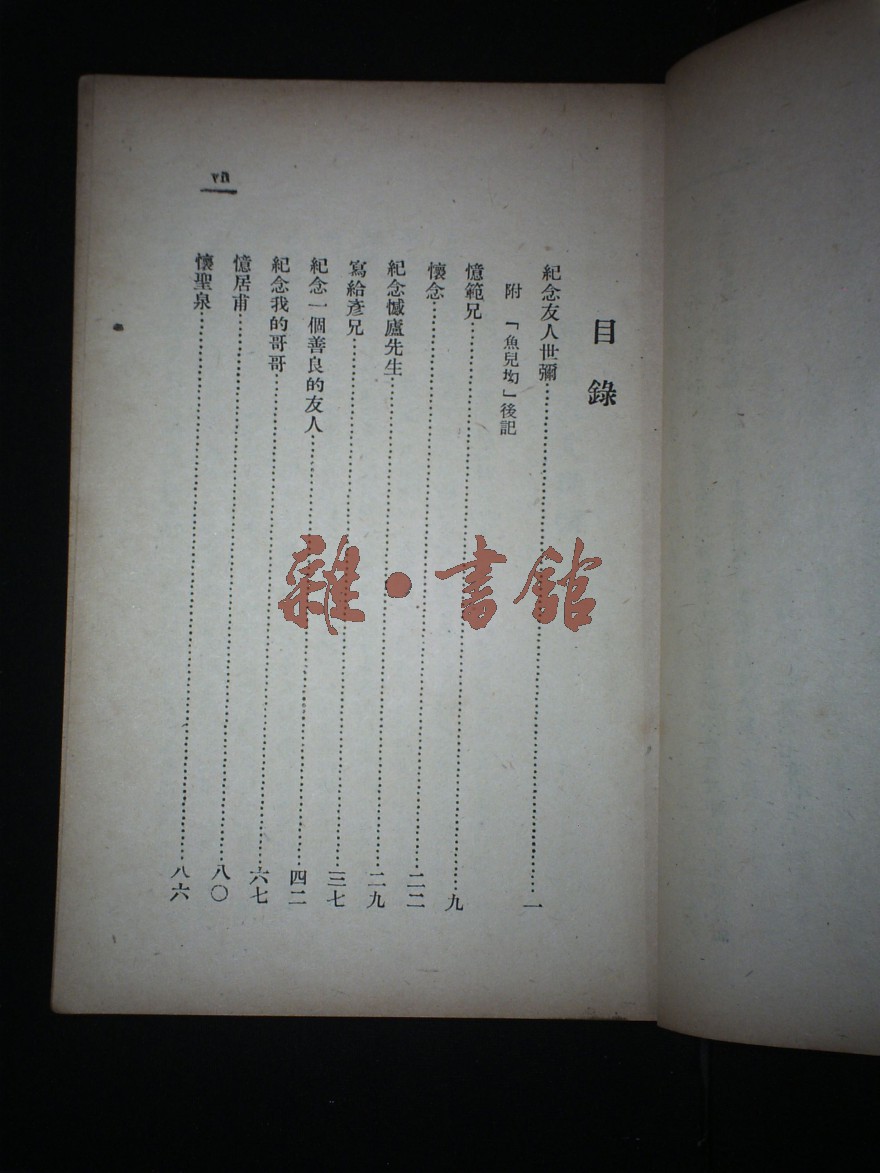 目錄
紀念友人世彌……一
附　「魚兒坳」後記
憶範兄……九
懷念……二二
紀念憾廬先生……二九
寫給彥兄……三七
紀念一個善良的友人……四二
紀念我的哥哥……六七
憶居甫……八〇
懷聖泉……八六
雜•書館